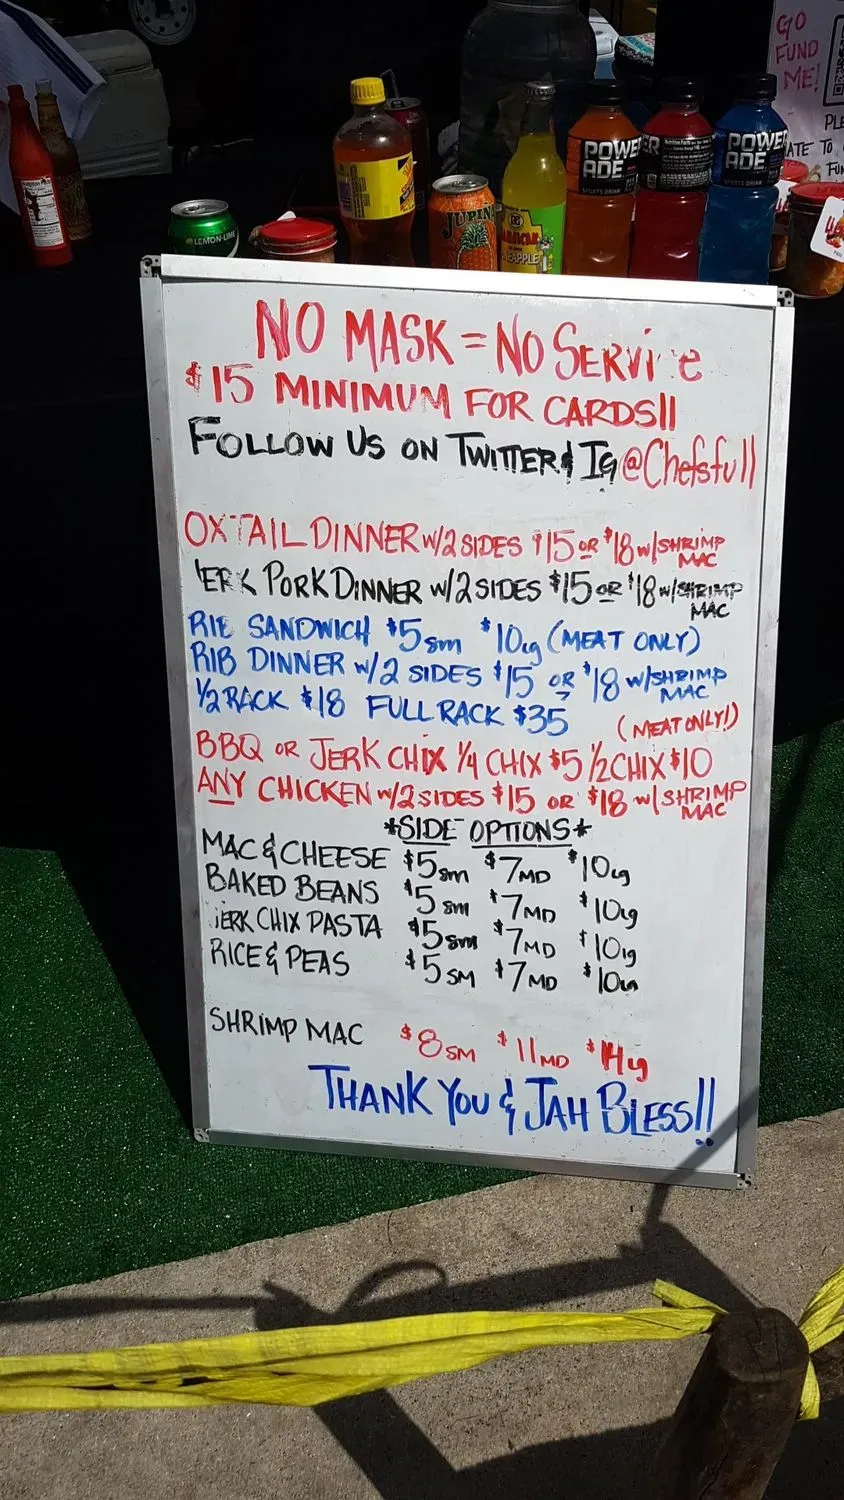 GO
FUND
ME!
LEMON-LIME
JUPIN
POWER
ADE
SPORTS DRINK
POWER
ADE
SPORTS DRINK
NO MASK = NO SERVICE
$15 MINIMUM FOR CARDS!!
FOLLOW US ON TWITTER & IG @Chefsfull
OXTAIL DINNER w/2 SIDES $15 OR $18 w/SHRIMP MAC
JERK PORK DINNER w/2 SIDES $15 OR $18 w/SHRIMP MAC
RIB SANDWICH $5 sm $10 lg (MEAT ONLY)
RIB DINNER w/2 SIDES $15 OR $18 w/SHRIMP MAC
1/2 RACK $18 FULL RACK $35 (MEAT ONLY!)
BBQ OR JERK CHIX 1/4 CHIX $5 1/2 CHIX $10
ANY CHICKEN w/2 SIDES $15 OR $18 w/SHRIMP MAC
*SIDE OPTIONS*
MAC & CHEESE $5 sm $7 MD $10 lg
BAKED BEANS $5 sm $7 MD $10 lg
JERK CHIX PASTA $5 sm $7 MD $10 lg
RICE & PEAS $5 SM $7 MD $10 lg
SHRIMP MAC $8 SM $11 MD $14 lg
THANK YOU & JAH BLESS!!